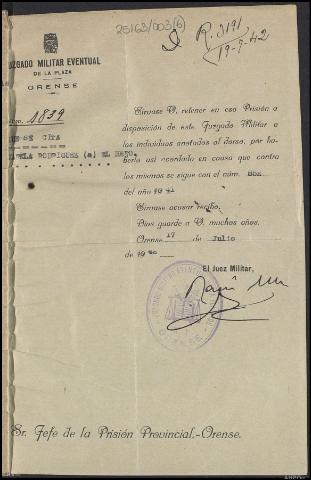 25163/003(6)
R. 3191
19-7-42
JUZGADO MILITAR EVENTUAL
DE LA PLAZA
ORENSE
1839
SE CITA
RODRIGUEZ (a)
Sírvase V. retener en esa Prisión a
disposición de este Juzgado Militar a
los individuos anotados al dorso, por ha-
berlo así acordado en causa que contra
los mismos se sigue con el núm.
del año 1941
Sírvase acusar recibo.
Dios guarde a V. muchos años.
Orense 17 de Julio
de 19
El Juez Militar,
Sr. Jefe de la Prisión Provincial.-Orense.